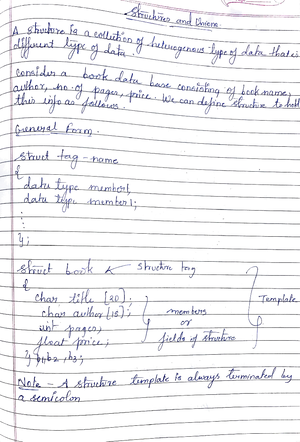 Structures and Unions.
A structure is a collection of heterogenous type of data that is
different type of data.
consider a book data base consisting of book name,
author, no. of pages, price. We can define structure to hold
this info as follows.
General Form.
struct tag-name
{
data type member1;
data type member1;
:
:
};
struct book ← structure tag
{
char title [20];
char author [15];
int pages;
float price;
} b1, b2, b3;
members
or
fields of structure
Template
Note - A structure template is always terminated by
a semicolon